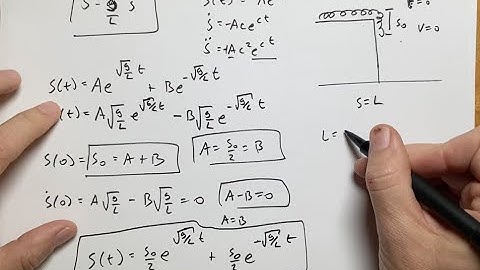 s̈ - g/L s
s(t) = Ae
ṡ = -Ace^ct
s̈ = +Ac²e^ct
s(t) = Ae^√(g/L)t + Be^-√(g/L)t
(t) = A√(g/L) e^√(g/L)t - B√(g/L) e^-√(g/L)t
s(0) = s₀ = A + B
A = s₀/2 = B
ṡ(0) = A√(g/L) - B√(g/L) = 0
A-B=0
A=B
s(t) = s₀/2 e^√(g/L)t + s₀/2 e^-√(g/L)t
=0
s₀
v=0
s=L
L=